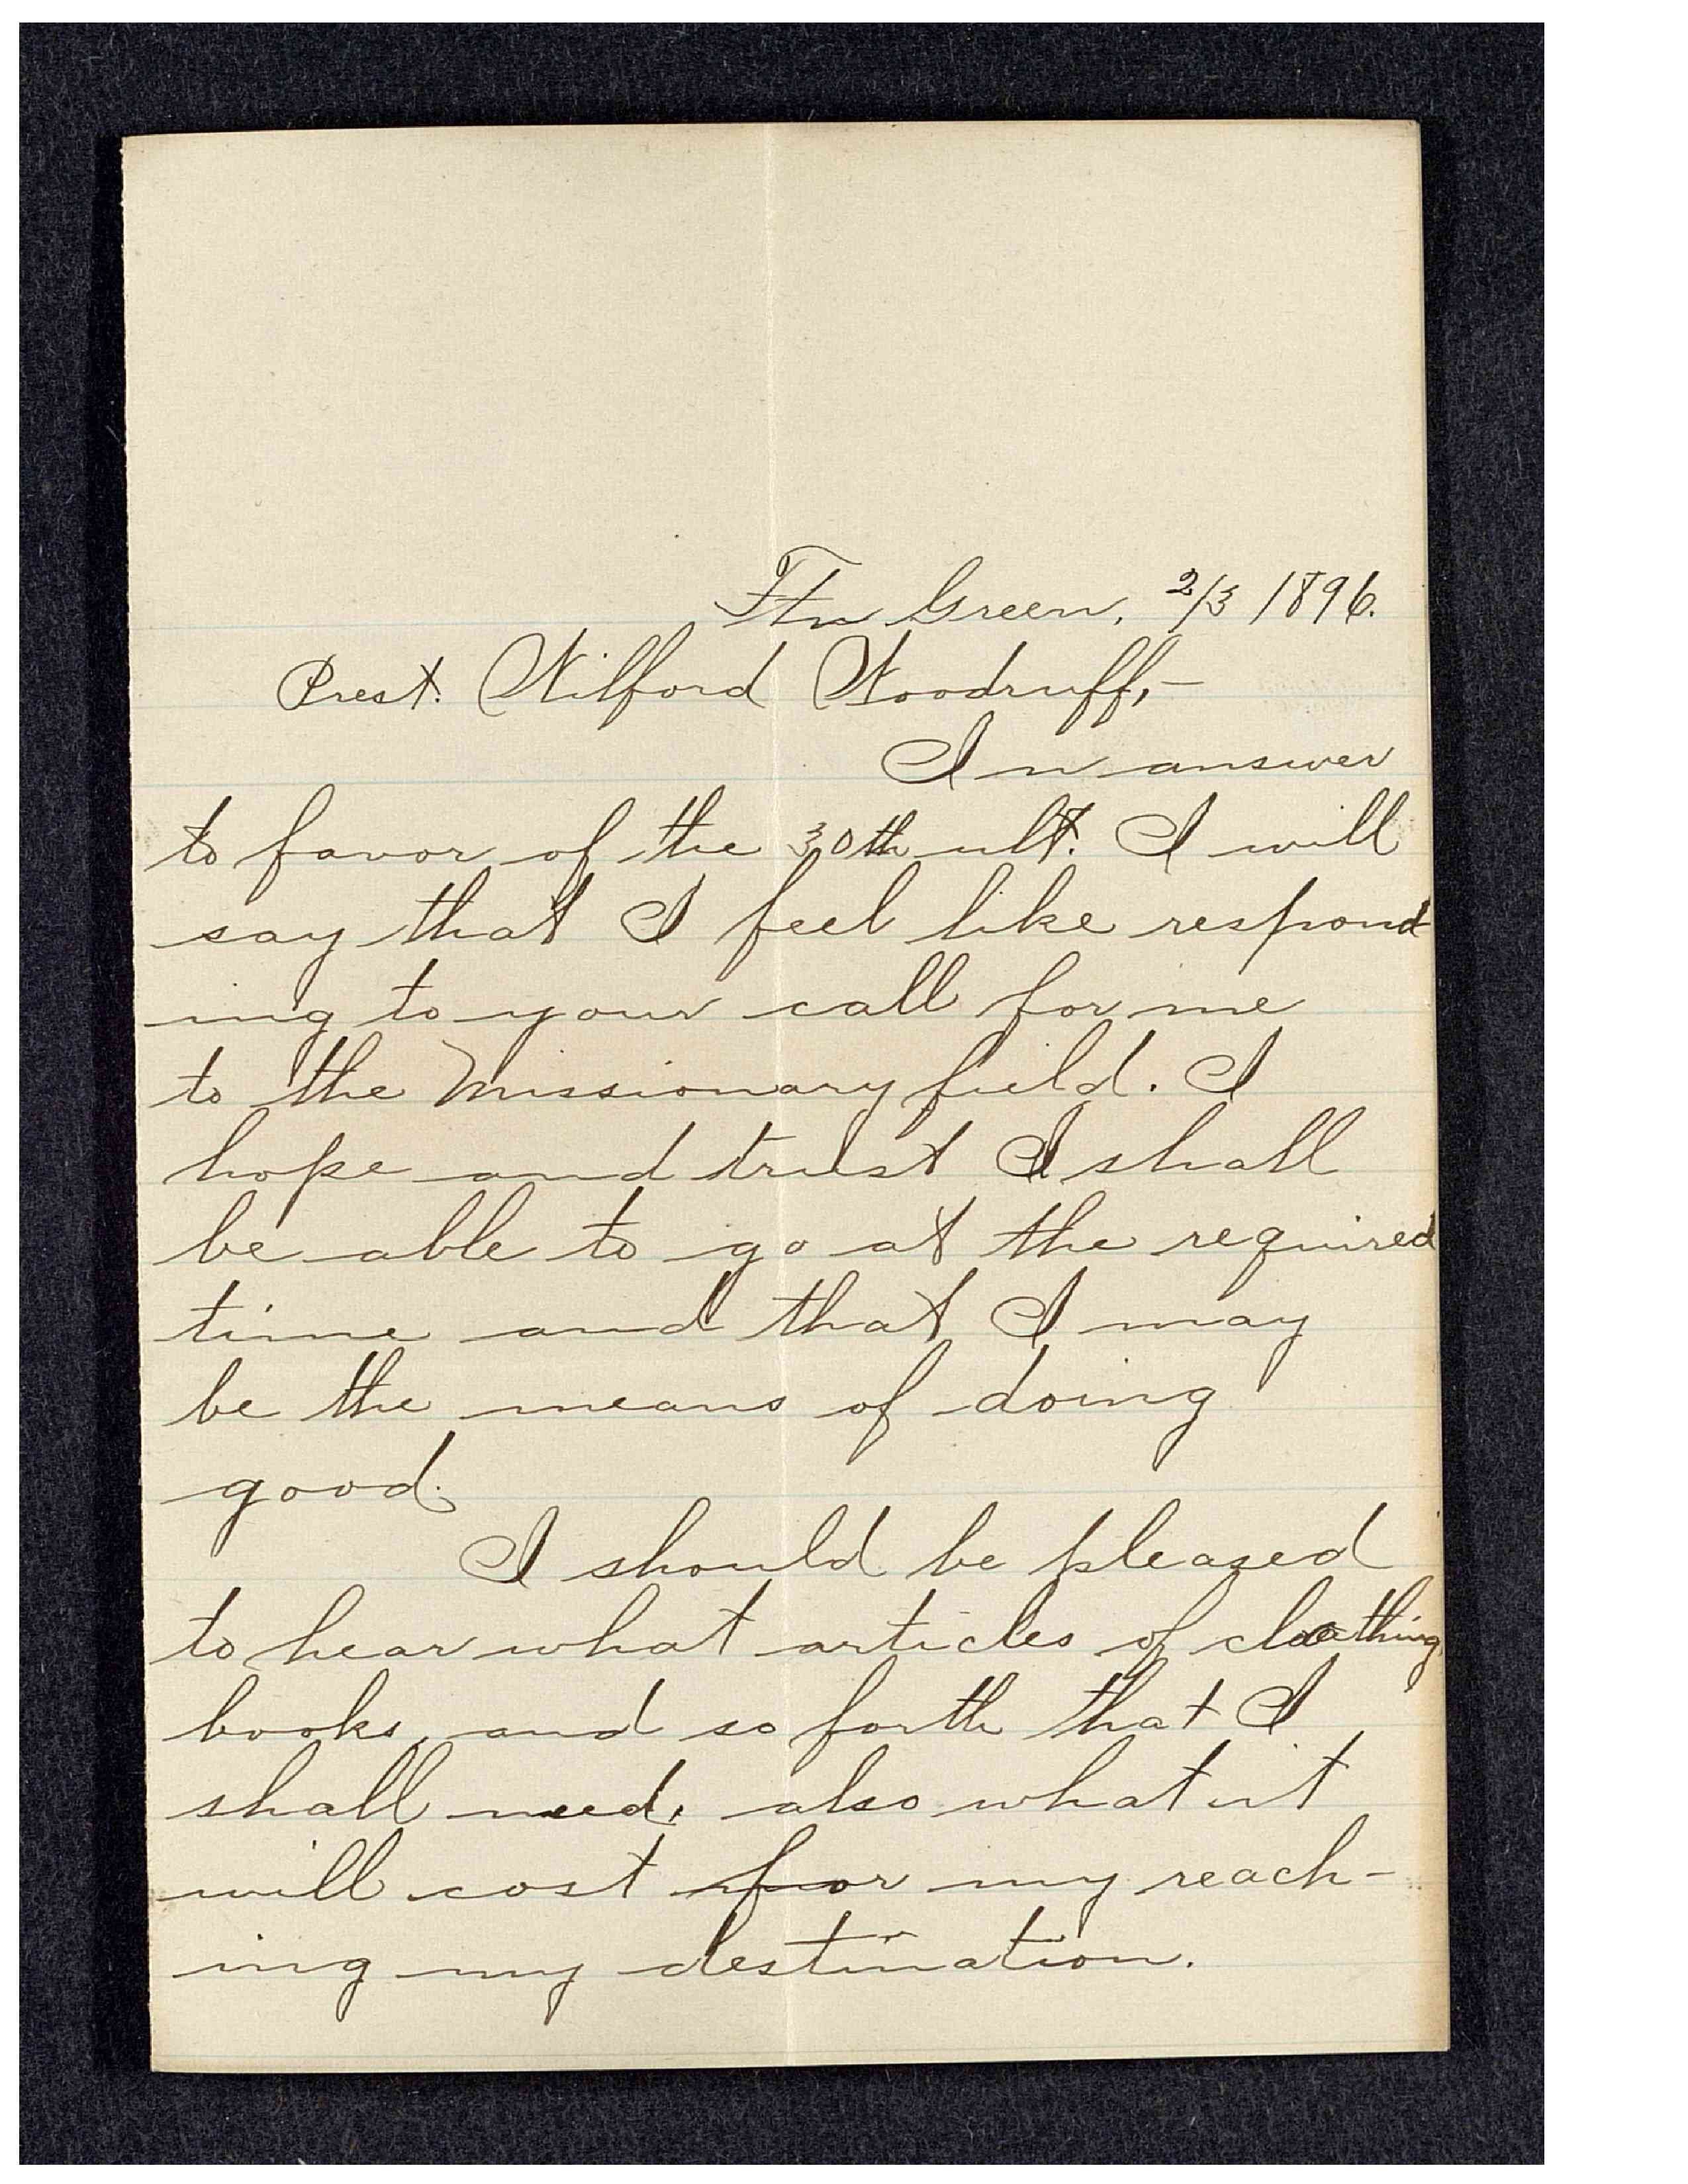 Ftn Green, 2/3 1896.
Prest. Wilford Woodruff,-
In answer
to favor of the 30th ult. I will
say that I feel like respond
ing to your call for me
to the Missionary field. I
hope and trust I shall
be able to go at the required
time and that I may
be the means of doing
good.
I should be pleased
to hear what articles of cloathing
books, and so forth that I
shall need, also what it
will cost for my reach-
ing my destination.